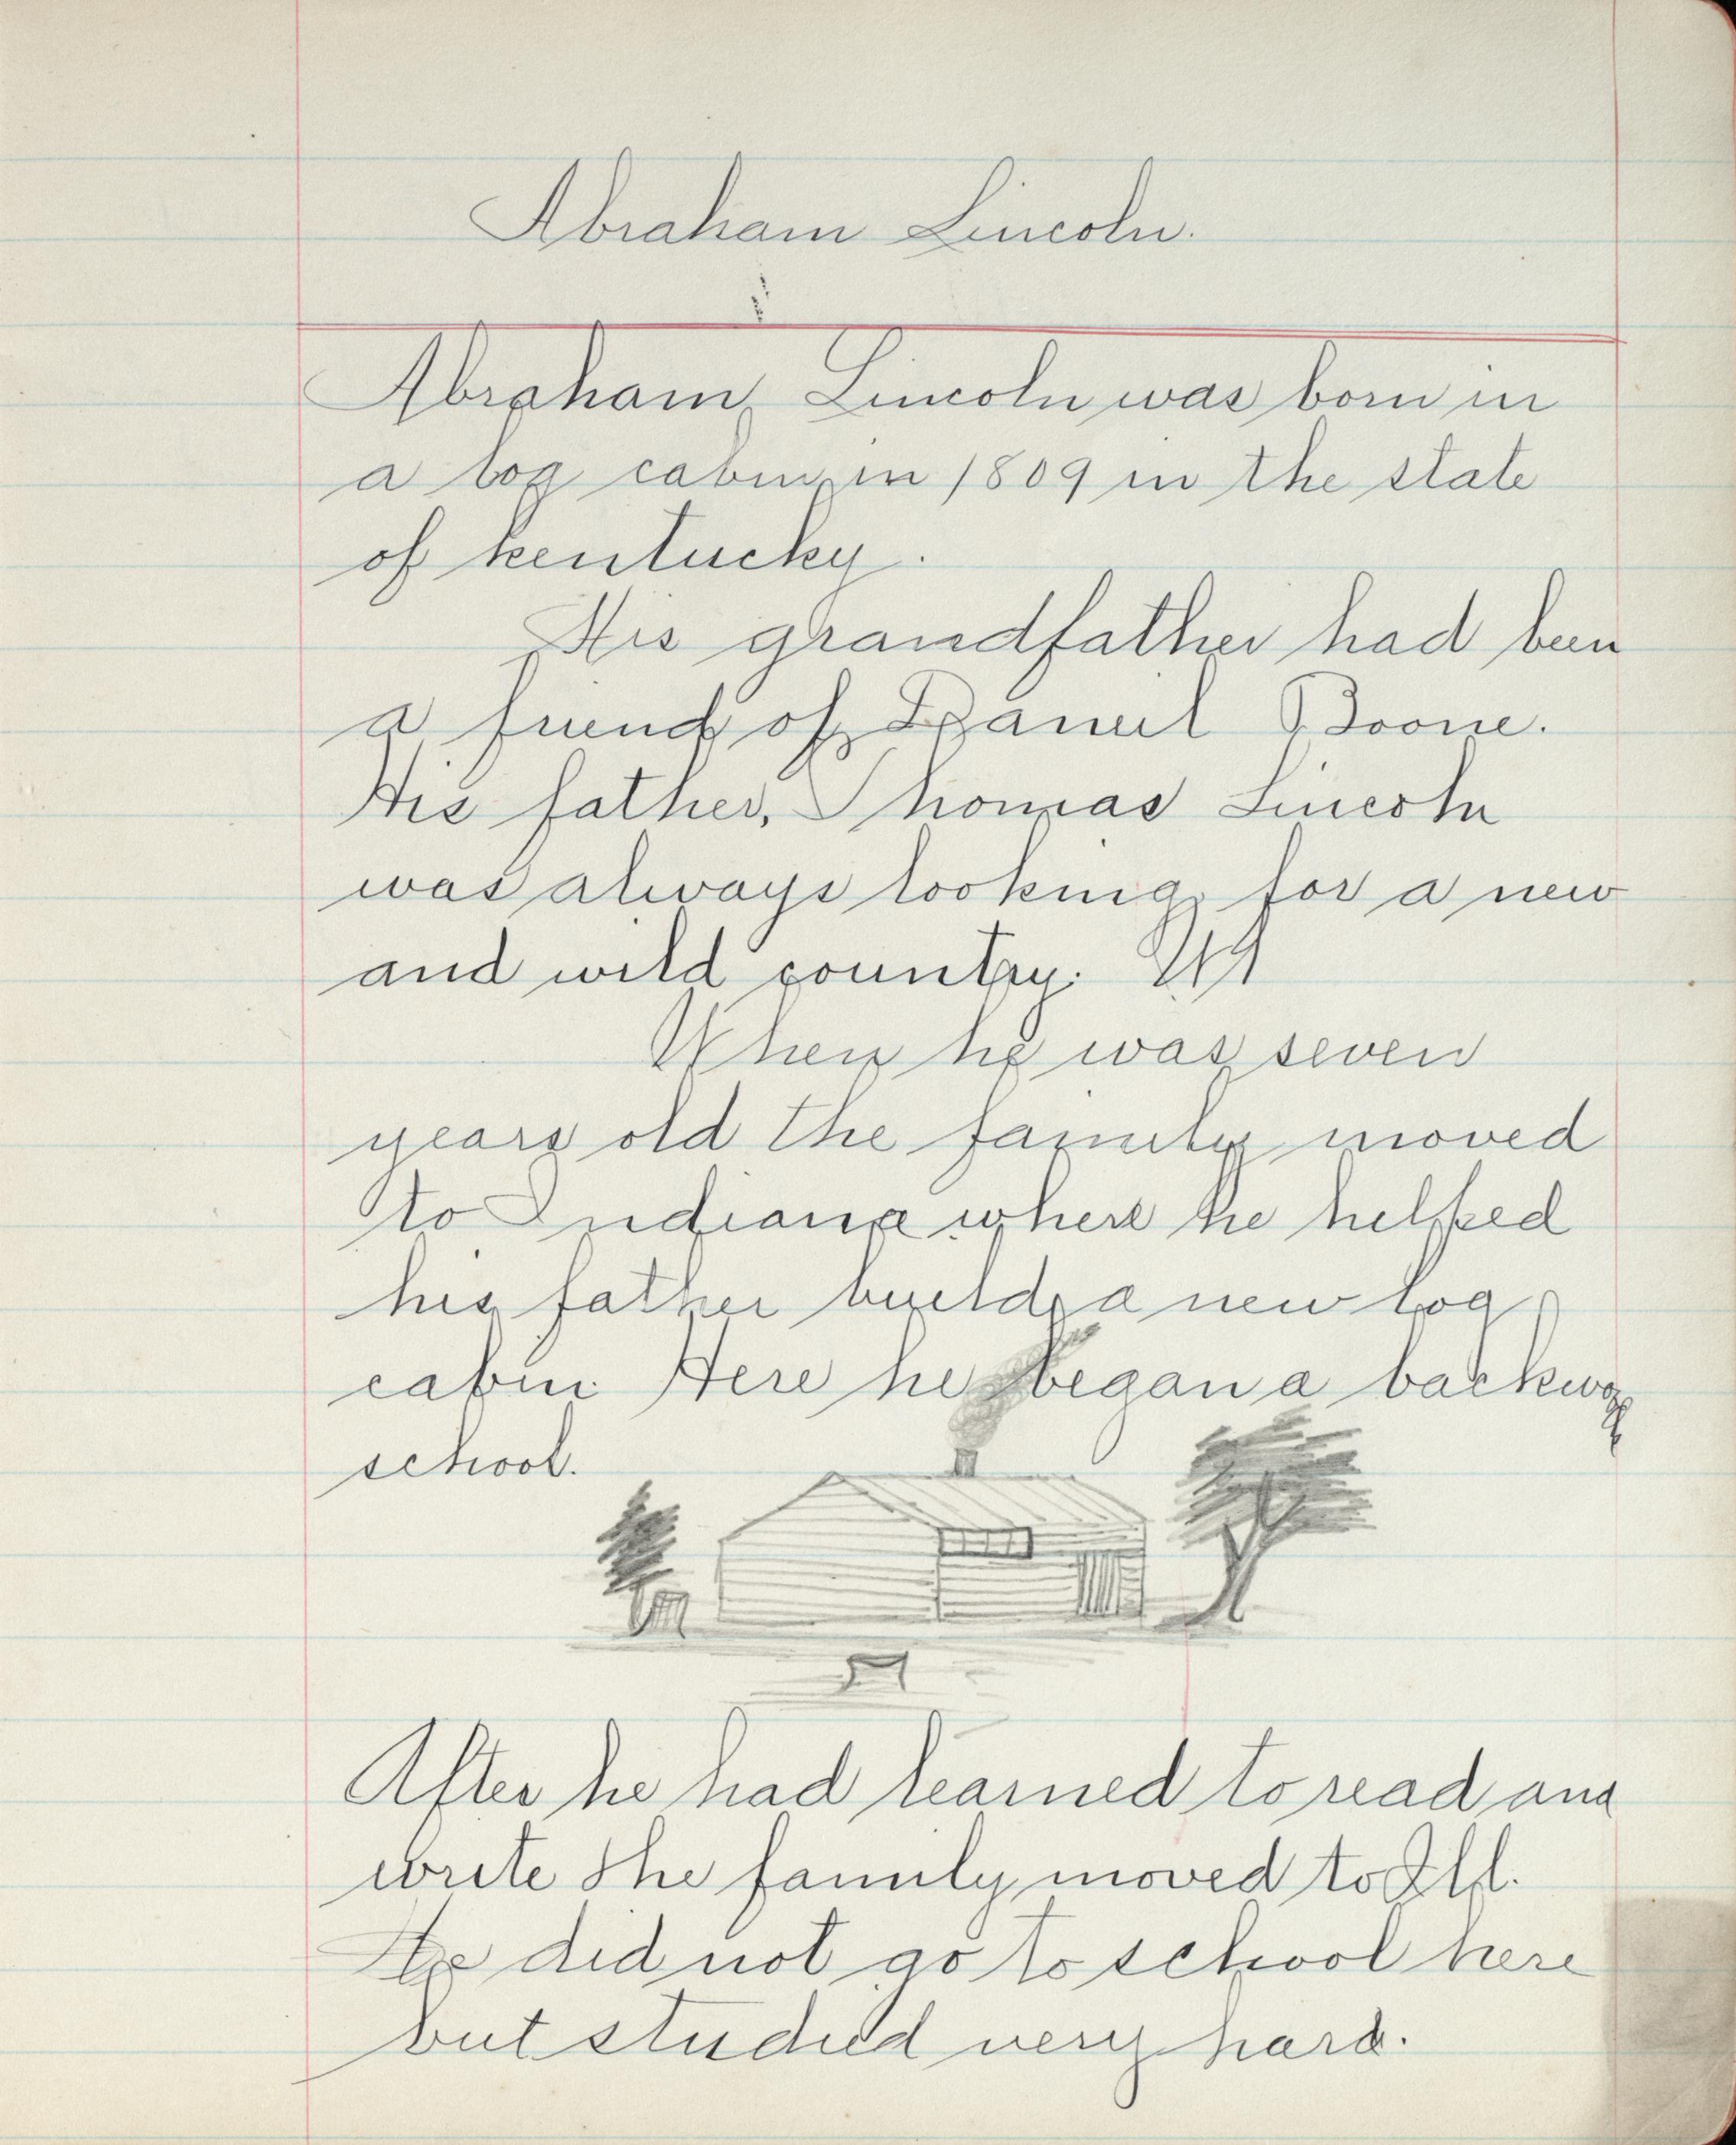 Abraham Lincoln.
Abraham Lincoln was born in
a log cabin in 1809 in the state
of kentucky.
His grandfather had been
a friend of Daniel Boone.
His father, Thomas Lincoln
was always looking for a new
and wild country.
When he was seven
years old the family moved
to Indiana where he helped
his father build a new log
cabin Here he began a
school.
After he had learned to read and
write the family moved to Ill.
He did not go to school here
but studied very hard.